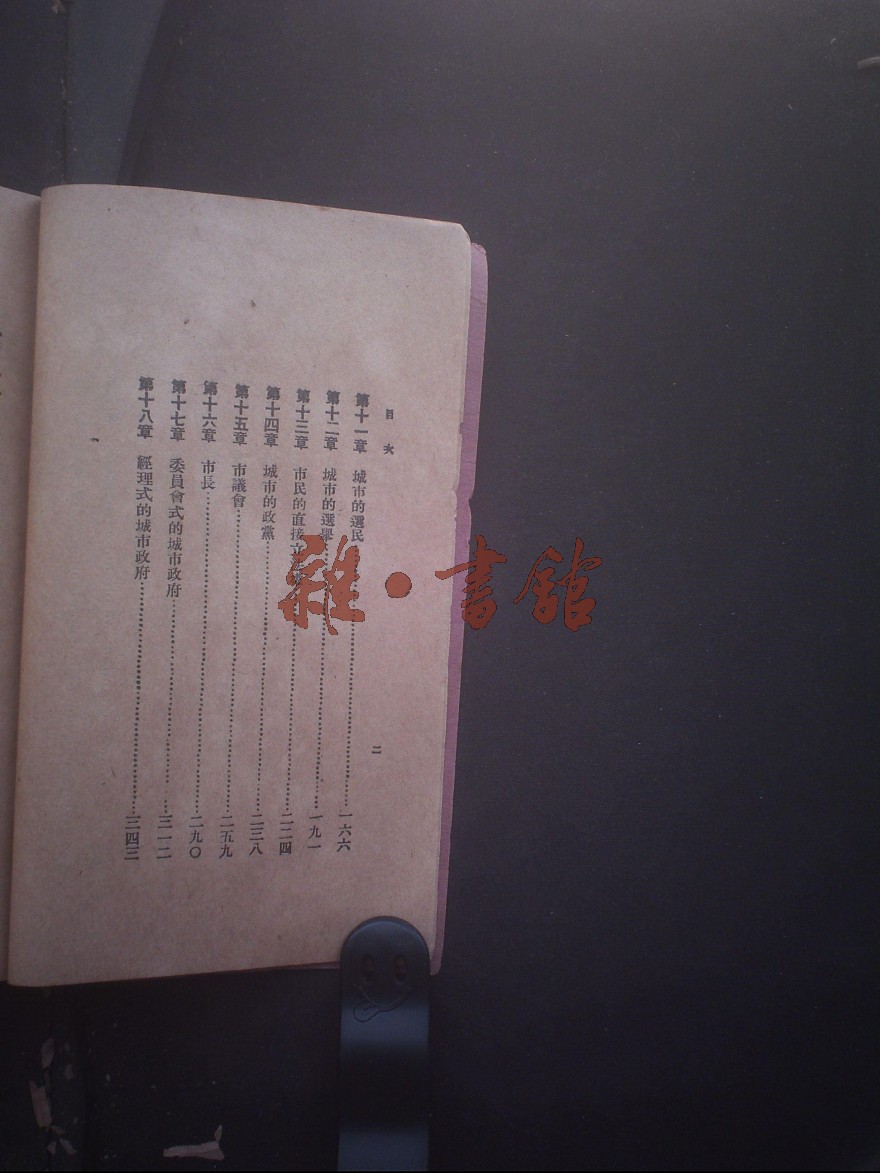 目次
二
第十一章 城市的選民 一六六
第十二章 城市的選舉 一九一
第十三章 市民的直接立 二二四
第十四章 城市的政黨 二三八
第十五章 市議會 二五九
第十六章 市長 二九〇
第十七章 委員會式的城市政府 三一二
第十八章 經理式的城市政府 三四三
雜·書館